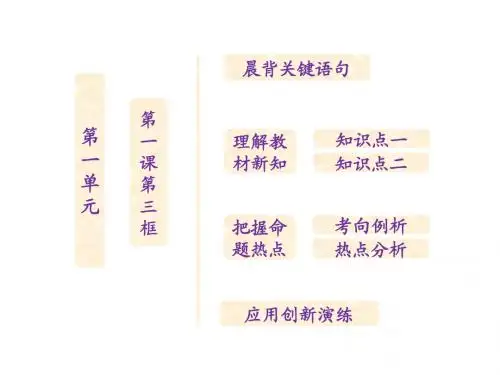 第一单元
第一课第三框
晨背关键语句
理解教
材新知
知识点一
知识点二
把握命
题热点
考向例析
热点分析
应用创新演练